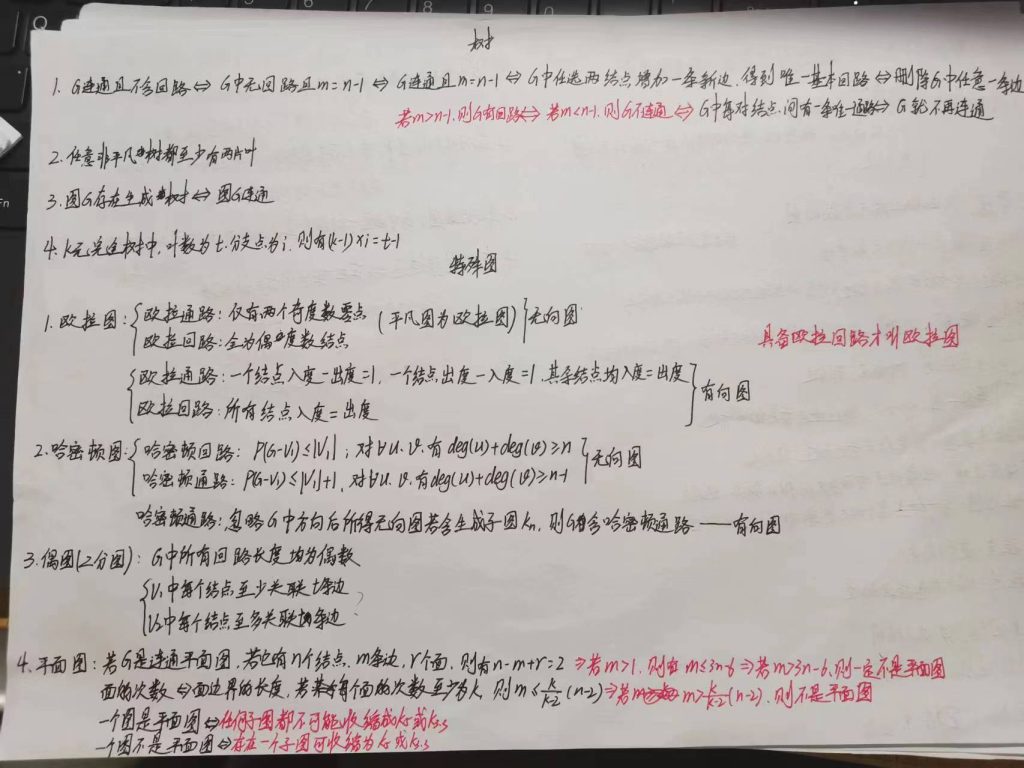 树
1. G连通且不含回路⇔G中无回路且m=n-1⇔G连通且m=n-1⇔G中任选两结点增加一条新边，得到唯一基本回路⇔删除G中任意一条边
若m>n-1，则G有回路⇔若m<n-1，则G不连通⇔G中每对结点间有一条任一通路⇔G就不再连通
2. 任意非平凡树都至少有两片叶
3. 图G存在生成树⇔图G连通
4. k元完全树中，叶数为t，分支点为i，则有(k-1)×i=t-1
特殊图
1. 欧拉图：欧拉通路：仅有两个奇度数零点 (平凡图为欧拉图) 无向图
欧拉回路：全为偶度数结点
具备欧拉回路才叫欧拉图
欧拉通路：一个结点入度-出度=1，一个结点出度-入度=1，其余结点均入度=出度 有向图
欧拉回路：所有结点入度=出度
2. 哈密顿图：哈密顿回路：P(G-V₁)≤|V₁|；对∀u.v.有deg(u)+deg(v)≥n 无向图
哈密顿通路：P(G-V₁)≤|V₁|+1，对∀u.v.有deg(u)+deg(v)≥n-1
哈密顿通路：忽略G中方向后所得无向图若含生成子图Kn，则G含哈密顿通路——有向图
3. 偶图(2分图)：G中所有回路长度均为偶数
V₁中每个结点至少关联t条边
V₂中每个结点至多关联t条边
4. 平面图：若G是连通平面图，若它有n个结点、m条边，r个面，则有n-m+r=2 ⇒若m>1，则有m≤3n-6⇒若m>3n-6，则一定不是平面图
面的次数⇔面边界的长度，若每个面的次数至少为k，则m≤k/(k-2)(n-2)⇒若m>k/(k-2)(n-2)，则不是平面图
一个图是平面图⇔任何子图都不可能收缩成K₅或K₃.₃
一个图不是平面图⇔存在一个子图可收缩为K₅或K₃.₃